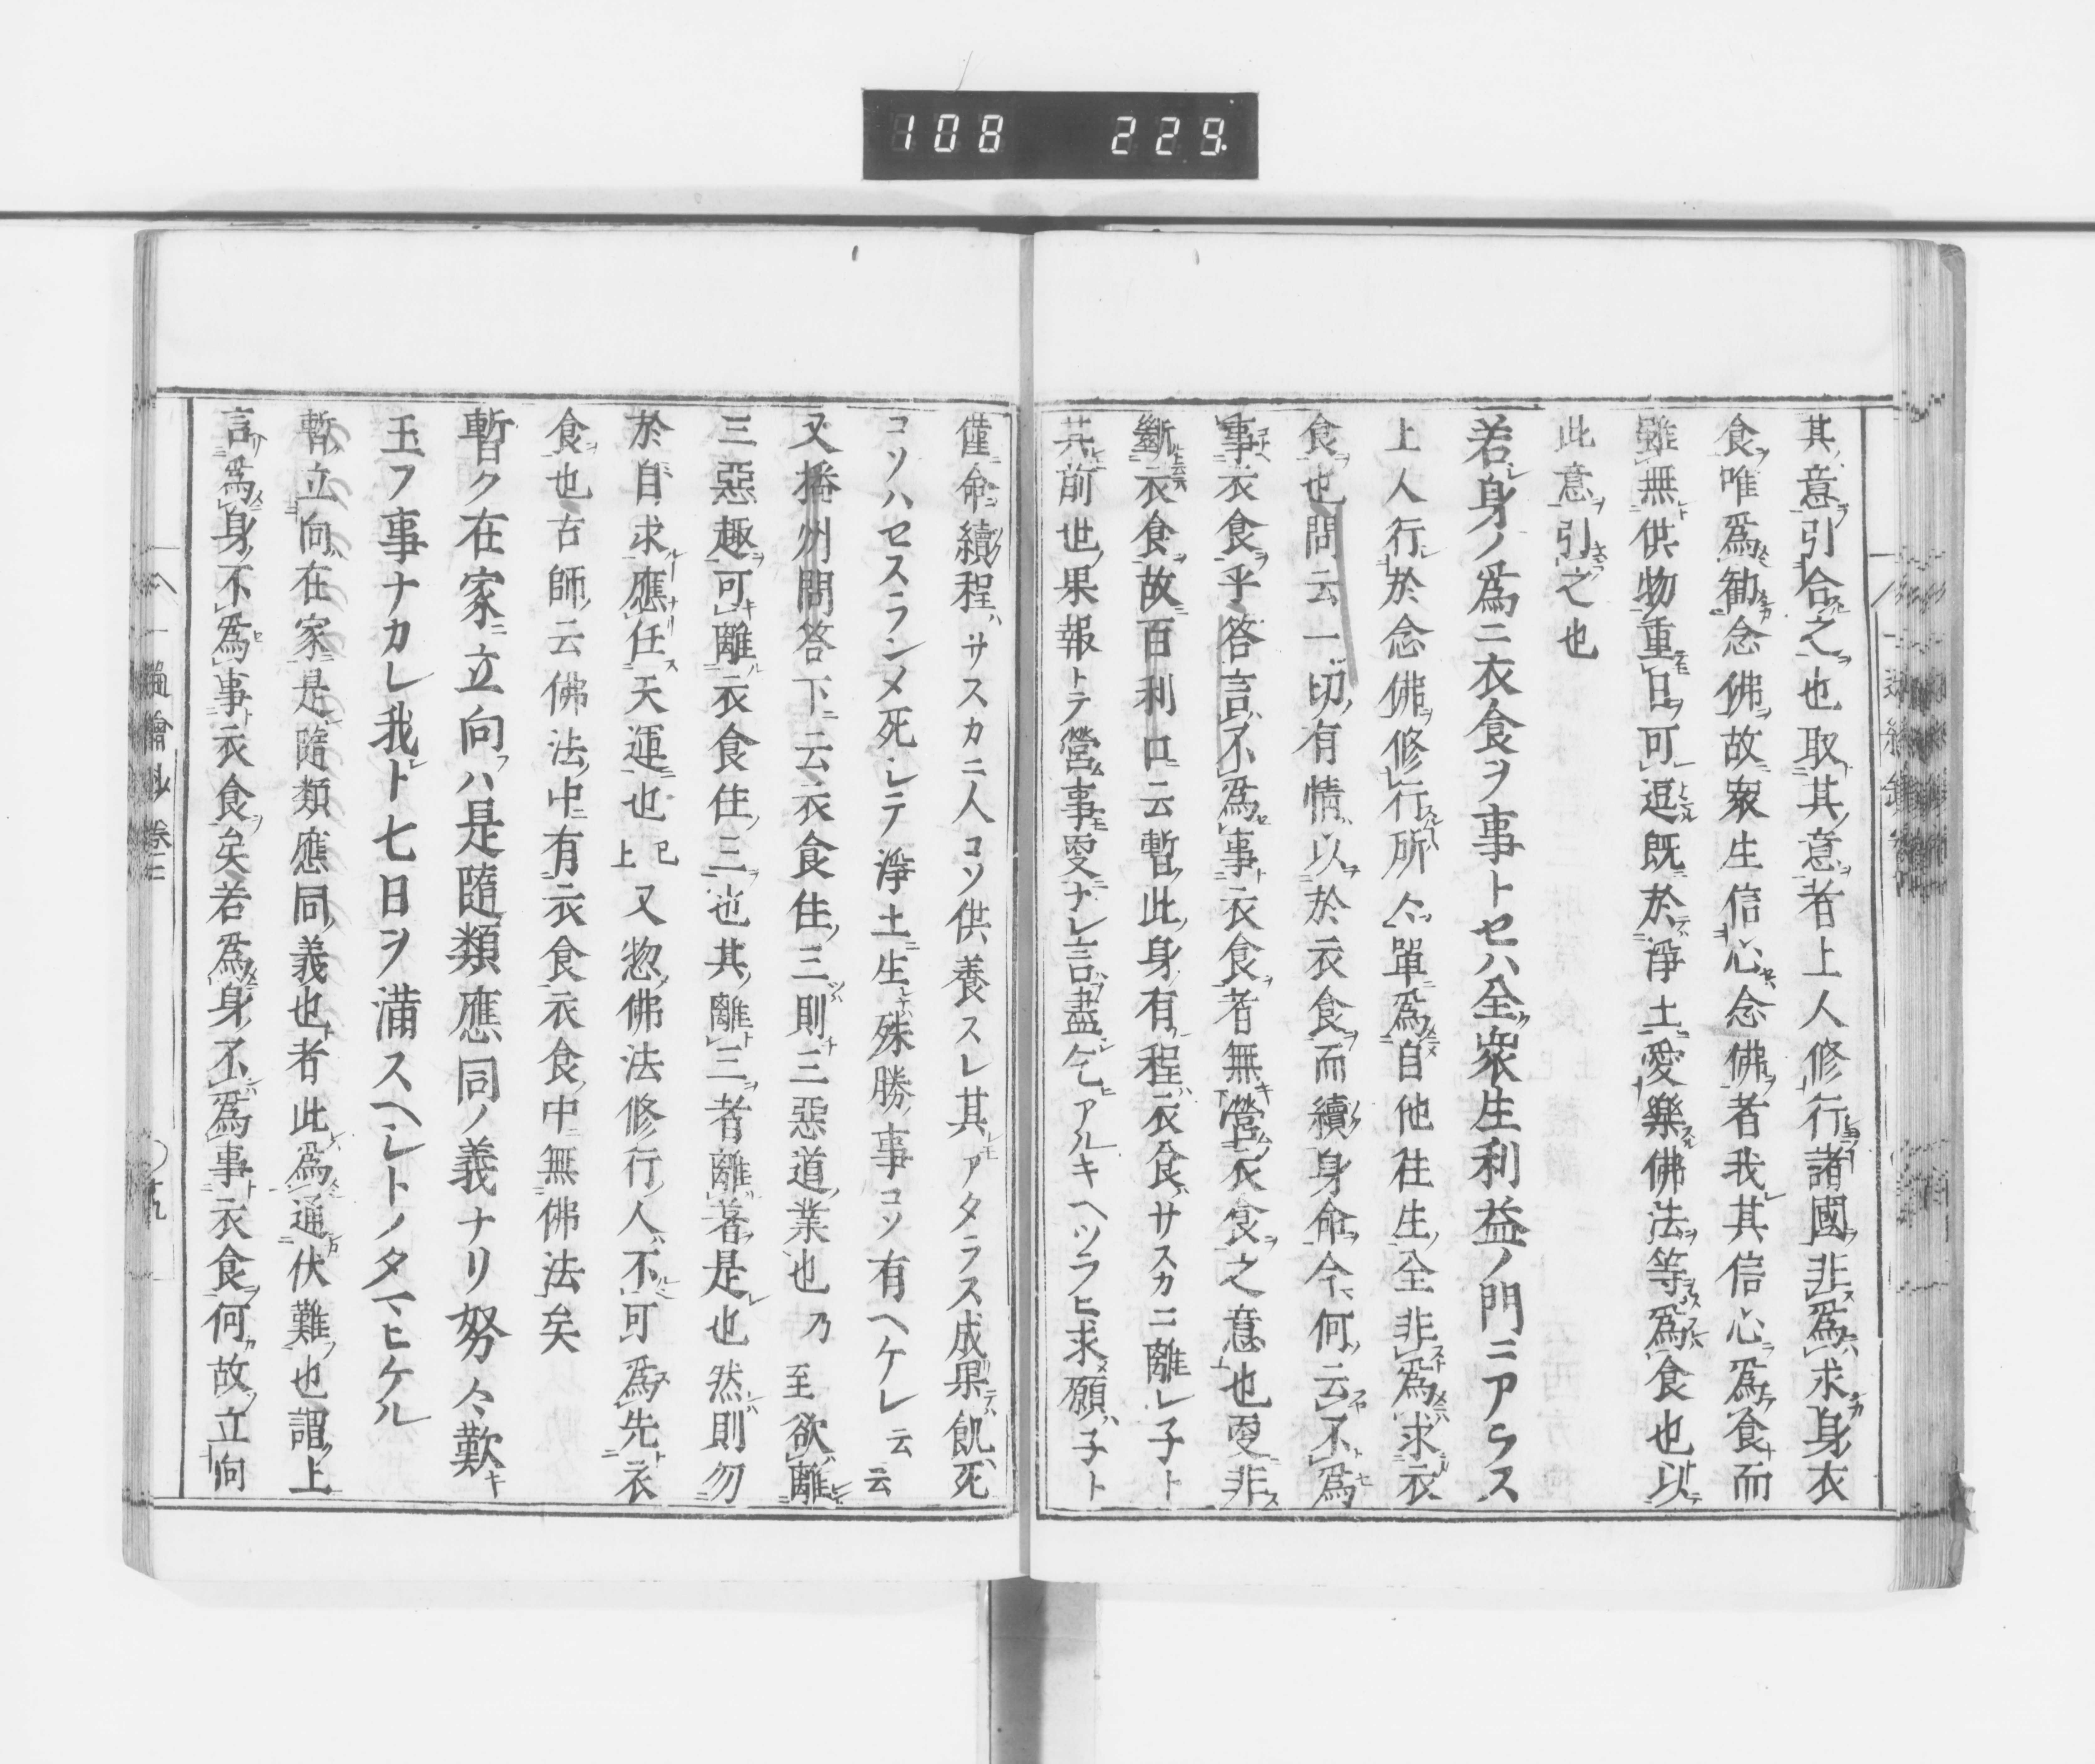 108 229
其意引合之也取其意者上人修行諸國非爲求身衣
食唯爲勧念佛故衆生信心念佛者我其信心爲食而
雖無供物重曰可逗既於淨土愛樂佛法等爲食也以
此意引之也
若身ノ爲ニ衣食ヲ事トセハ全衆生利益ノ門ニアラス
上人行於念佛修行所々單爲自他往生全非爲求衣
食也問云一切有情以於衣食而續身命今何云不爲
事衣食乎答言不爲事衣食者無營衣食之意也爰非
斷衣食故百利口云暫此身有程衣食サスカニ離レ子ト
其前世果報トテ營事愛ナレ言盡乞アルキヘツラヒ求願子ト
僅命續程サスカニ人コソ供養スレ其アタラス成果飢死
コソハセスランメ死シテ淨土生殊勝事コソ有ヘケレ云云
又播州問答下云衣食住三則三惡道業也乃至欲離
三惡趣可離衣食住三也其離三者離著是也然則勿
於自求應任天運也已上又惣佛法修行人不可爲先衣
食也古師云佛法中有衣食衣食中無佛法矣
暫ク在家ニ立向ハ是隨類應同ノ義ナリ努々歎キ
玉フ事ナカレ我ト七日ヲ満スヘシトノタマヒケル
暫立向在家是隨類應同義也者此爲通伏難也謂上
言爲身不爲事衣食矣若爲身不爲事衣食何故立向
繪抄 卷三 十九